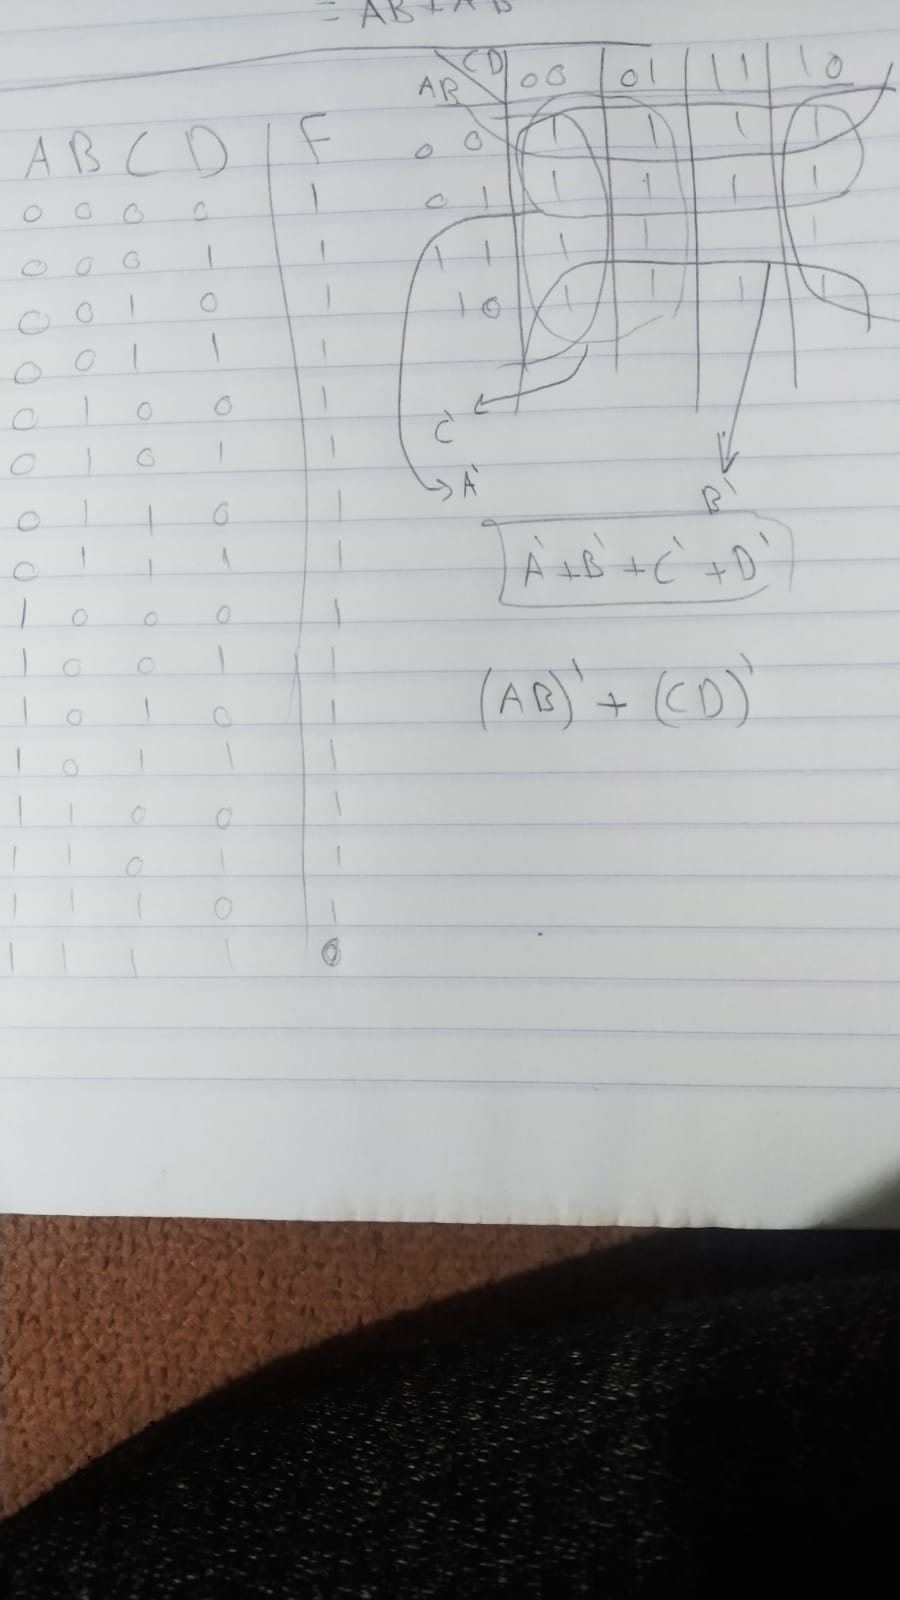 = AB + A'B'
A B C D | F
0 0 0 0 | 1
0 0 0 1 | 1
0 0 1 0 | 1
0 0 1 1 | 1
0 1 0 0 | 1
0 1 0 1 | 1
0 1 1 0 | 1
0 1 1 1 | 1
1 0 0 0 | 1
1 0 0 1 | 1
1 0 1 0 | 1
1 0 1 1 | 1
1 1 0 0 | 1
1 1 0 1 | 1
1 1 1 0 | 1
1 1 1 1 | 0
AB CD 00 01 11 10
00 1 1 1 1
01 1 1 1 1
11 1 1 1
10 1 1 1 1
C'
A'
B'
A'+B'+C'+D'
(AB)'+(CD)'